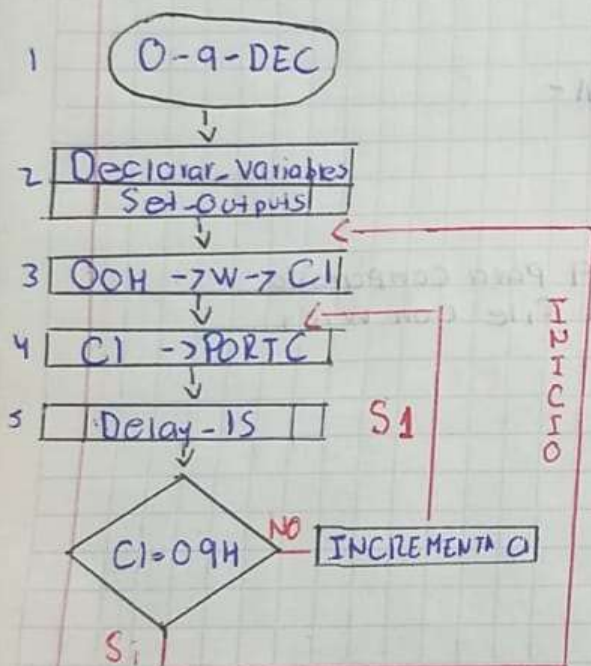 1 0-9-DEC
2 Declarar_Variables
Set_Outputs
3 00H -> W -> C1
4 C1 -> PORTC
5 Delay-1S
S1
INICIO
C1=09H
NO
INCREMENTA C1
Si